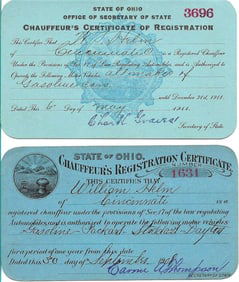 STATE OF OHIO
OFFICE OF SECRETARY OF STATE 3696
CHAUFFEUR'S CERTIFICATE OF REGISTRATION
This Certifies That Wm Helm
of Cincinnati Registered Chauffeur
Under the Provisions of Law Regulating Automobiles, and is Authorized to
Operate the Following Motor Vehicles
Gasoline cars until December 31st, 1911.
Dated This 6 Day of May 1911.
Chas H Graves
Secretary of State.
STATE OF OHIO. NUMBER
CHAUFFEUR'S REGISTRATION CERTIFICATE 1631
THIS CERTIFIES THAT
William Helm
of Cincinnati is a
registered chauffeur under the provisions of Sec. 17 of the law regulating
Automobiles, and is authorized to operate the following motor vehicles
Gasoline - Packard Stoddard Dayton
for a period of one year from this date.
Dated this 30 day of September 190
Carmi Thompson
SECRETARY OF STATE